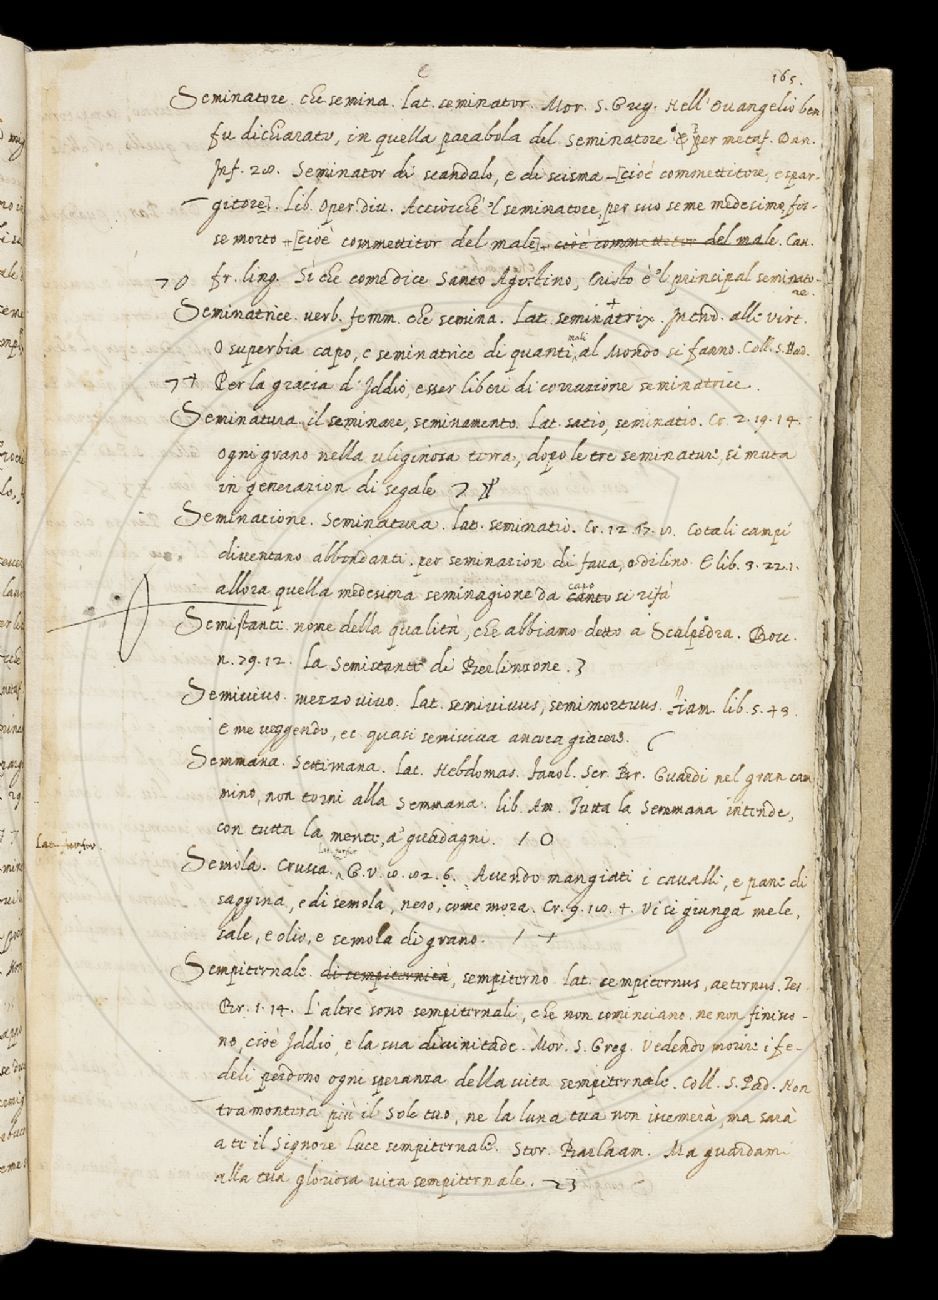 165.
Seminatore. che semina. Lat. seminator. Mor. S. Greg. Nell'Evangelio ben
fu dichiarato, in quella parabola del seminatore & per metaf. Dan.
Inf. 28. Seminator di scandalo, e di scisma [cioè commettitore, e spar-
gitore]. Lib. Oper. div. Acciocchè 'l seminatore, per suo seme medesimo, fos-
se morto [cioè commettitor del male], cioè commettitor del male. Cav.
fr. ling. Sì che come dice Santo Agostino, Cristo è 'l principal seminato-
re.
Seminatrice. verb. femm. che semina. Lat. seminatrix. Introd. alle Virt.
O superbia capo, e seminatrice di quanti mali al Mondo si fanno. Coll. S. Pad.
Per la grazia d'Iddio, esser liberi di corruzione seminatrice.
Seminatura. il seminare, seminamento. Lat. satio, seminatio. Cr. 2. 19. 14.
ogni grano nella uliginosa terra, dopo le tre seminature, si muta
in generazion di segale
Seminazione. Seminatura. Lat. seminatio. Cr. 12. 17. Cotali campi
diventano abbondanti per seminazion di fava, o di lino. E lib. 3. 22. 1.
allora quella medesima seminagione da capo canto si rifà
Semistante. nome della qualità, che abbiamo detto a Scalpedra. Bocc.
n. 79. 12. La Semistante di Berlinzone.
Semivivo. mezzo vivo. Lat. semivivus, semimortuus. Fiam. lib. 5. 43.
E me veggendo, ec. quasi semiviva ancora giacere.
Semmana. Settimana. Lat. Hebdomas. Tavol. Ser. Br. Guardi nel gran cam
mino, non torni alla Semmana. lib. Am. Tutta la Semmana intende,
con tutta la mente, a' guadagni.
Lat. furfur.
Semola. Crusca. Lat. furfur G. V. 8. 82. 6. Avendo mangiati i cavalli, e pane di
saggina, e di semola, nero, come mora. Cr. 9. 18. 4. Vi si giunga mele,
sale, e olio, e semola di grano.
Sempiternale. di sempiternità, sempiterno. Lat. sempiternus, aeternus. Tes.
Br. 1. 14. L'altre sono sempiternali, che non cominciano, ne non finisco-
no, cioè Iddio, e la sua divinitade. Mor. S. Greg. Vedendo morire i fe-
deli perdono ogni speranza della vita sempiternale. Coll. S. Pad. Non
tramonterà più il Sole tuo, ne la luna tua non iscemerà, ma sarà
a te il Signore luce sempiternale. Stor. Barlaam. Ma guardami
alla tua gloriosa vita sempiternale.